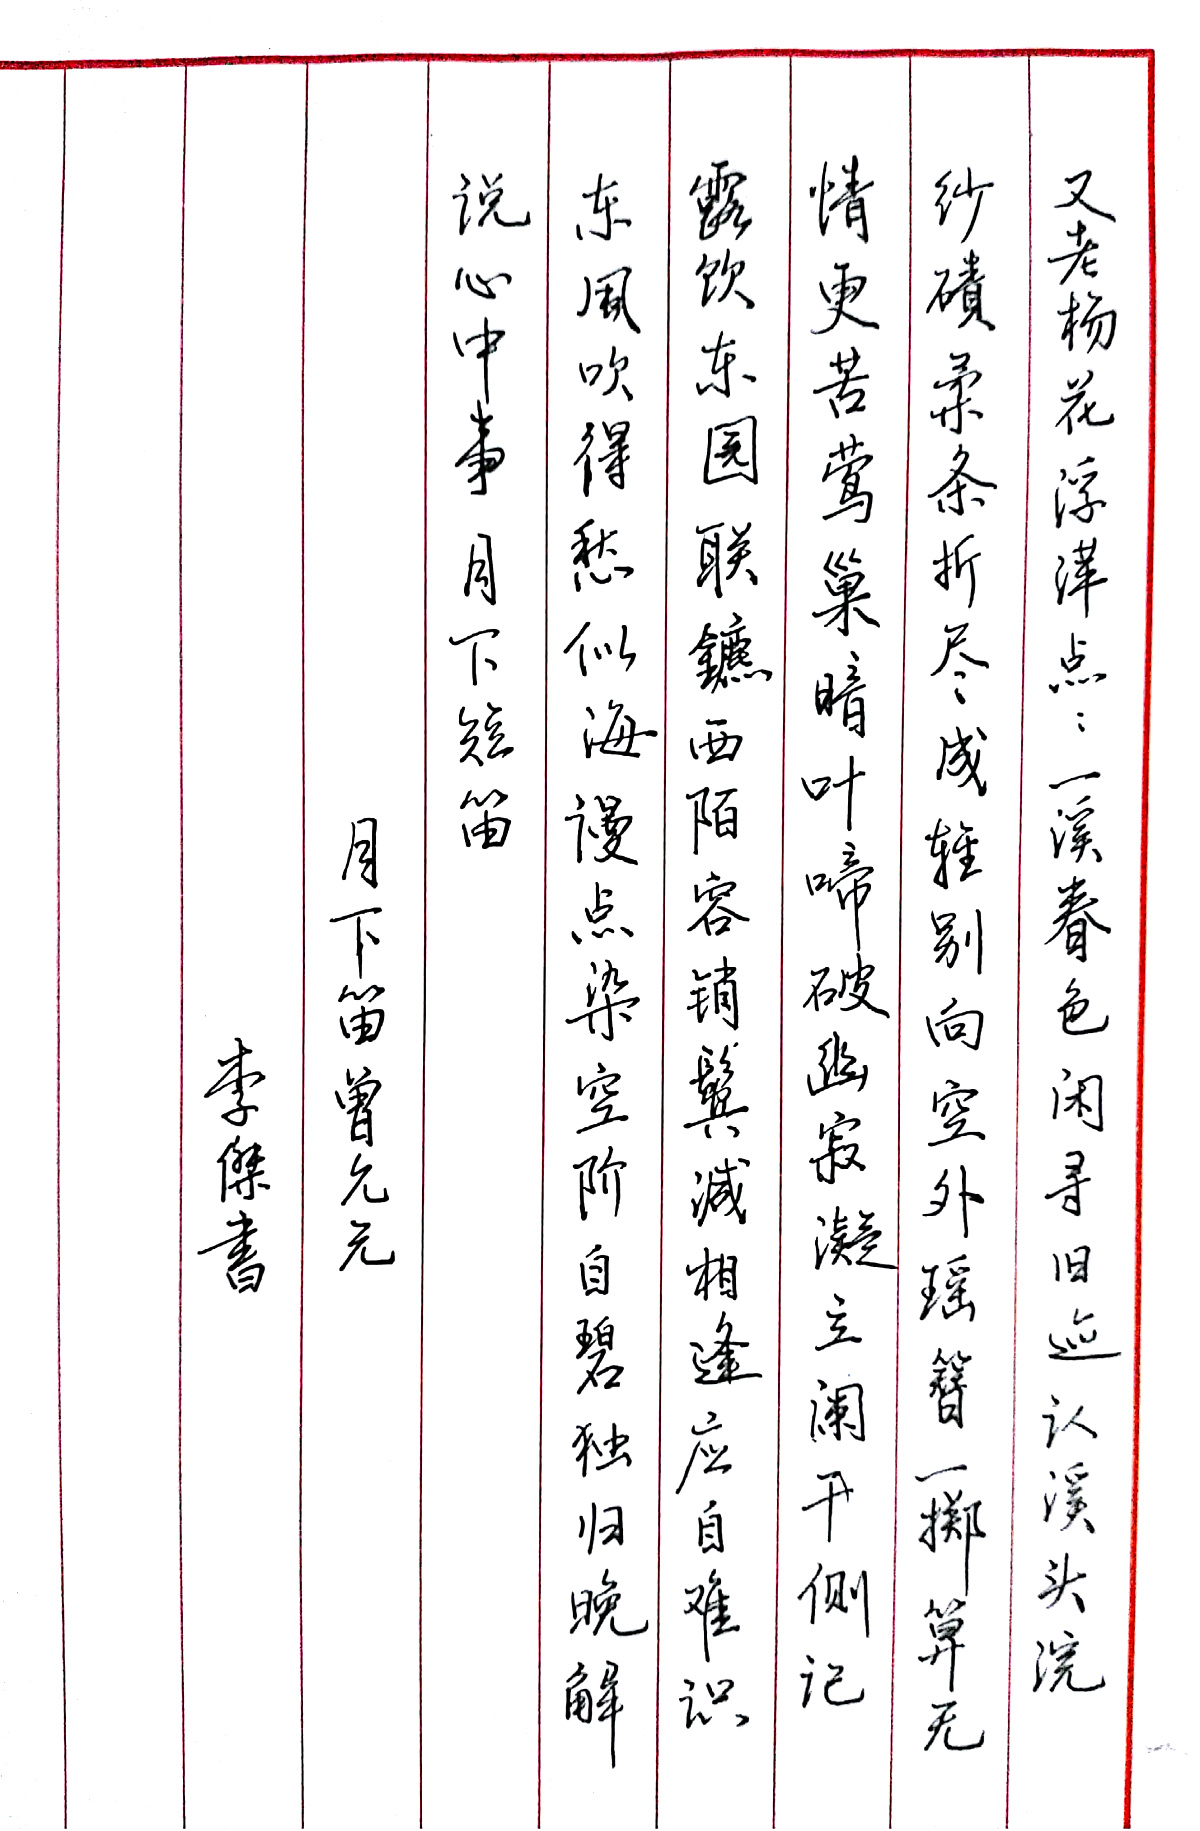 又老杨花浮萍点点一溪春色闲寻旧迹认溪头浣
纱碛柔条折尽成轻别向空外瑶簪一掷算无
情更苦莺巢暗叶啼破幽寂凝立阑干侧记
露饮东园联镳西陌容销鬓减相逢应自难识
东风吹得愁似海谩点染空阶自碧独归晚解
说心中事月下短笛
月下笛曾允元
李傑書